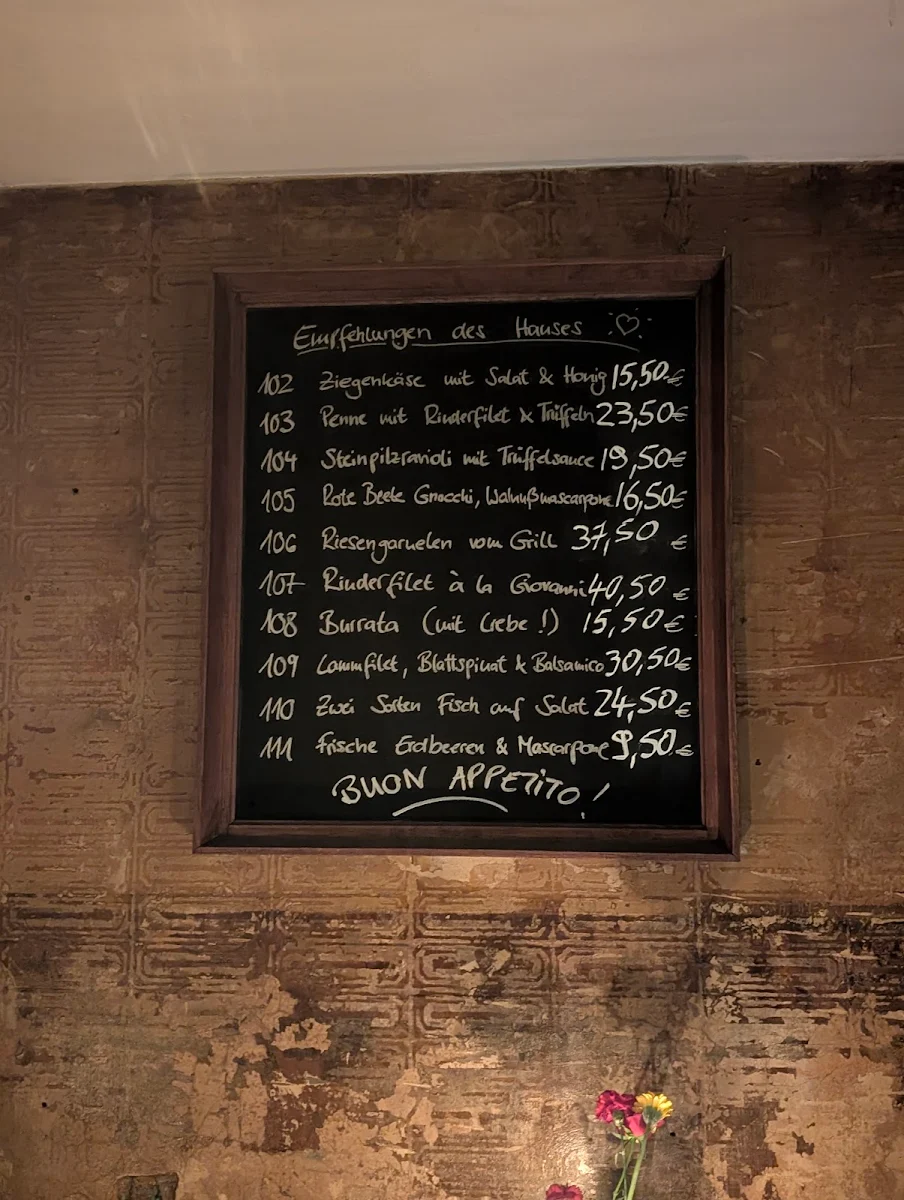 Empfehlungen des Hauses ♡
102 Ziegenkäse mit Salat & Honig 15,50€
103 Penne mit Rinderfilet & Trüffeln 23,50€
104 Steinpilzravioli mit Trüffelsauce 19,50€
105 Rote Beete Gnocchi, Walnußmascarpone 16,50€
106 Riesengarnelen vom Grill 37,50 €
107 Rinderfilet à la Giovanni 40,50 €
108 Burrata (mit Liebe !) 15,50€
109 Lammfilet, Blattspinat & Balsamico 30,50€
110 Zwei Sorten Fisch auf Salat 24,50€
111 frische Erdbeeren & Mascarpone 9,50€
BUON APPETiTO!